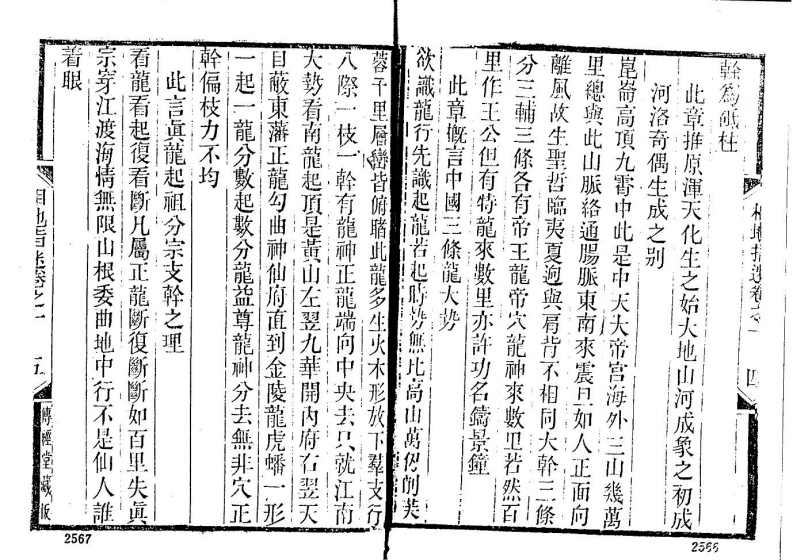 幹為砥柱
此章推原渾天化生之始大地山河成象之初成
河洛奇偶生成之別
崑崙高頂九霄中此是中天大帝宮海外三山幾萬
里總與此山脈絡通腸脈東南來震旦如人正面向
離風故生聖哲臨夷夏迥與肩背不相同大幹三條
分三輔三條各有帝王龍帝穴龍神來數里若然百
里作王公但有特龍來數里亦許功名鑄景鐘
此章慨言中國三條龍大勢
欲識龍行先識起龍若起時勢無比高山萬仞削芙
蓉千里層巒皆俯睹此龍多生火木形放下羣支行
八際一枝一幹有龍神正龍端向中央去只就江南
大勢看南龍起頂是黃山左翌九華開內府右翌天
目蔽東藩正龍勾曲神仙府直到金陵龍虎蟠一形
一起一龍分數起數分龍益尊龍神分去無非穴正
幹偏枝力不均
此言眞龍起祖分宗支幹之理
看龍看起復看斷凡屬正龍斷復斷斷如百里失眞
宗穿江渡海情無限山根委曲地中行不是仙人誰
着眼
相地指迷卷之一
四
五
傳經堂藏版
2566
2567